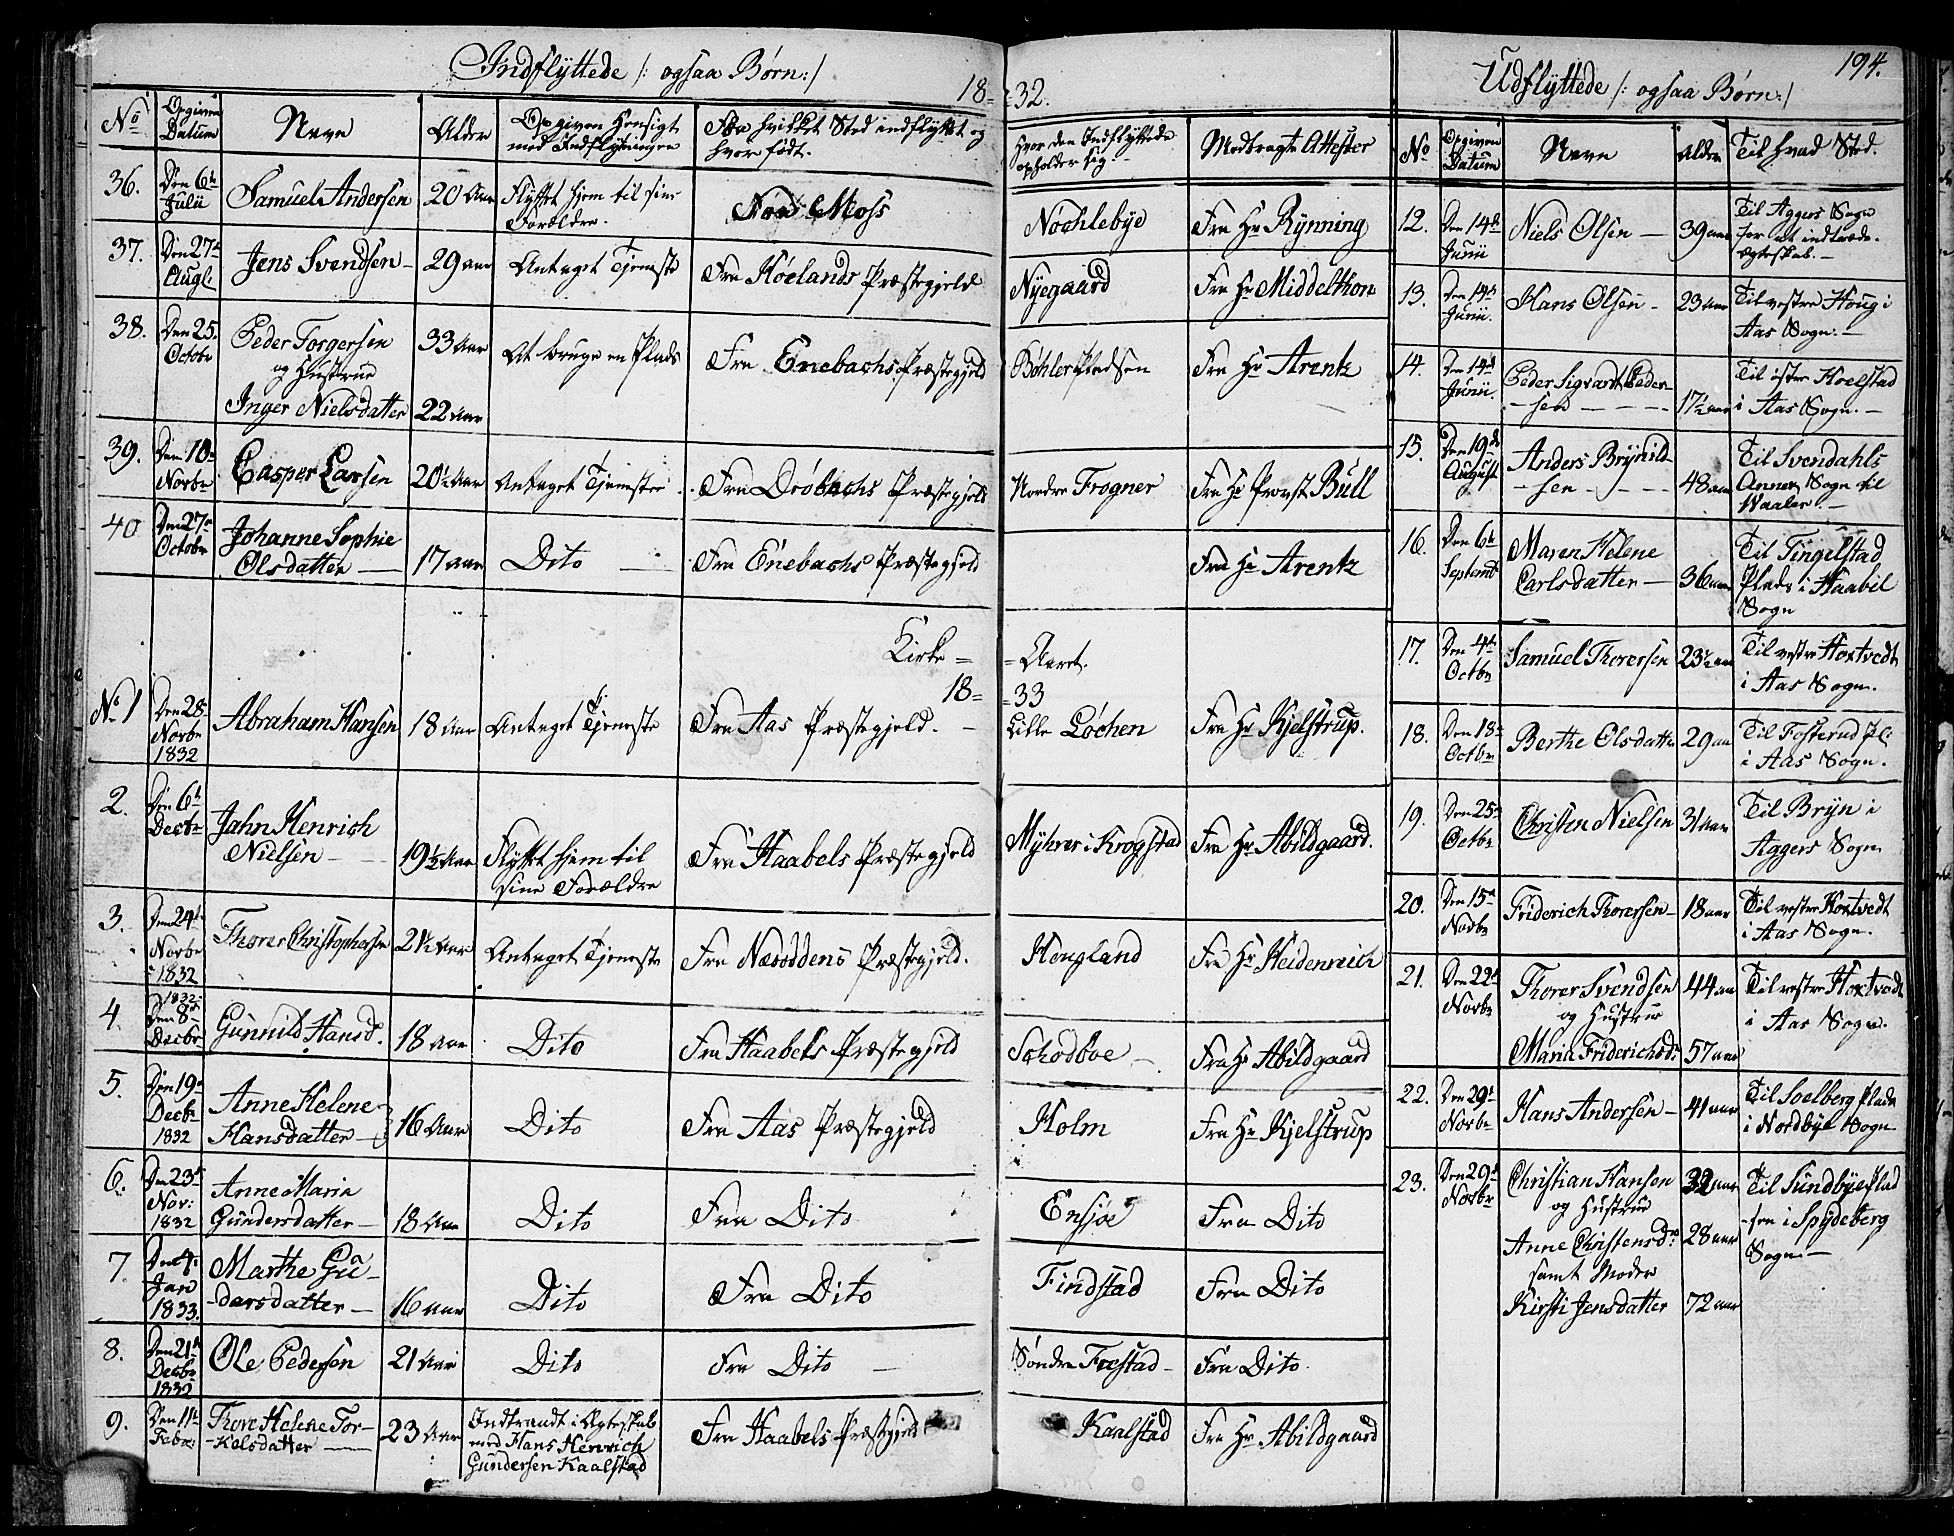 Indflyttede /: ogsaa Børn:/
18=
No
Opgiven Datum
Navn
Alder
Opgiven Hensigt med Indflytningen
Fra hvilket Sted indflyttet og hvor født.
36. Den 6te Julii Samuel Andersen 20 Aar Flyttet hjem til sine Forældre. Fra Moss
37. Den 27de Augt. Jens Svendsen 29 aar Antaget Tjeneste Fra Høelands Præstegjeld
38. Den 25. Octobr Peder Torgersen 33 Aar At bruge en Plads Fra Enebachs Præstegjeld
og Hustrue
Inger Nielsdatter 22 Aar
39. Den 10de Novbr Casper Larsen 20½ Aar Antaget Tjeneste Fra Drøbachs Præstegjeld
40 Den 27de Octobr Johanne Sophie
Olsdatter 17 aar Dito Fra Enebachs Præstegjeld
Kirke =
18=
No 1 Den 28de Novbr 1832 Abraham Hansen 18 Aar Antaget Tjeneste Fra Aas Præstegjeld.
2. Den 6te Decbr Jahn Henrich
Nielsen 19½ Aar Flyttet hjem til sine Forældre Fra Haabels Præstegjeld
3. Den 24de Novbr 1832 Thorer Christophersen 21½ Aar Antaget Tjeneste Fra Næsoddens Præstegjeld.
4. 1832 Den 8de Decbr Gunnild Hansd. 18 aar Dito Fra Haabels Præstegjeld
5. Den 19de Decbr 1832 Anne Helene
Hansdatter 16 Aar Dito Fra Aas Præstegjeld
6. Den 23de Nov: 1832 Anne Maria
Gundersdatter 18 Aar Dito Fra Dito
7. Den 4. Jan 1833. Marthe Gu-
-darsdatter 16 aar Dito Fra Dito
8. Den 21de Decbr 1832 Ole Pedersen 21 Aar Dito Fra Dito
9. Den 11te Febr: Thore Helene Tor-
-kelsdatter 23 Aar Indtraadt i Ægteskab
med Hans Henrich
Gundersen Kaalstad Fra Haabels Præstegjeld
=32.
Hvor den Indflyttede opholder sig
Medbragte Attester
Nochlebye Fra Hr Rynning
Nyegaard Fra Hr Middelthon
Bøhler Pladsen Fra Hr Arentz
Nordre Frogner Fra Hr Provst Bull
Fra Hr Arentz
= Aaret.
=33
Lille Løchen Fra Hr Kjelstrup.
Myhrer i Krogstad Fra Hr Abildgaard.
Hougland Fra Hr Heidenreich
Schodboe Fra Hr Abildgaard
Holm Fra Hr Kjelstrup
Ensjøe Fra Dito
Findstad Fra Dito
Søndre Frestad Fra Dito.
Kaalstad Fra Hr Abildgaard
Udflyttede /: ogsaa Børn:/
194.
No
Opgiven Datum
Navn
Alder
Til hvad Sted.
12. Den 14de Junii Niels Olsen 39 aar Til Aggers Sogn
for at indtræde.
Ægteskab.
13. Den 14de Junii. Hans Olsen 23 Aar Til vestre Houg i
Aas Sogn.
14. Den 14de Junii. Peder Sigvardt Peder-
-sen 17½ aar Til østre Hoelstad
i Aas Sogn.
15. Den 19de August Anders Brynild-
-sen 48 aar Til Svendahls
Annex Sogn til
Waaler.
16. Den 6te Septembr Maren Helene
Carlsdatter 36 aar Til Tingelstad
Plads i Haabil
Sogn
17. Den 4de Octbr Samuel Thorersen 23½ aar Til vestre Hoxtvedt
i Aas Sogn.
18. Den 18de Octbr Berthe Olsdatter 29 aar Til Fosterud Pl:
i Aas Sogn.
19. Den 25de Octbr Christen Nielsen 31 Aar Til Bryn i
Aggers Sogn
20. Den 15de Novbr Friderich Thorersen 18 aar Til vestre Hoxtvedt
i Aas Sogn.
21. Den 22de Novbr Thorer Svendsen 44 aar Til vestre Hoxtvedt
og Hustrue i Aas Sogn.
Maria Friderichsd. 57 aar
22. Den 29de Novbr Hans Andersen 41 aar Til Soelberg Plads
i Nordbye Sogn
23. Den 29de Novbr Christian Hansen 32 aar Til Sundbye Plad-
og Hustrue -sen i Spydeberg
Anne Christensdr 28 aar Sogn.
samt Moder
Kirsti Jensdatter 72 aar